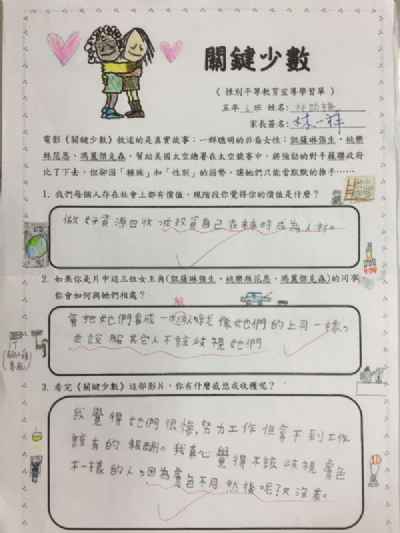 關鍵少數
《 性別平等教育宣導學習單 》
五年 班 姓名：
家長簽名：林一祥
電影《關鍵少數》敘述的是真實故事：一群聰明的非裔女性：凱薩琳強生、桃樂
絲范恩、瑪麗傑克森，幫助美國太空總署在太空競賽中，將強勁的對手蘇聯政府
比了下去，但卻因「種族」和「性別」的弱勢，讓她們只能當默默的推手……
1. 我們每個人存在社會上都有價值，現階段你覺得你的價值是什麼？
做好資源回收 投資自己在 時成為人才。
2. 如果你是片中這三位女主角(凱薩琳強生、桃樂絲范恩、瑪麗傑克森)的同事
你會如何與她們相處？
會把她們看成一 像她們的上司一樣。
去說服其它人不該歧視她們
3. 看完《關鍵少數》這部影片，你有什麼感想或收穫呢？
我覺得她們很 ，努力工作但拿不到工作
該有的報酬。我真心覺得不該歧視膚色
不一樣的人。因為膚色不同然後呢？又沒差。